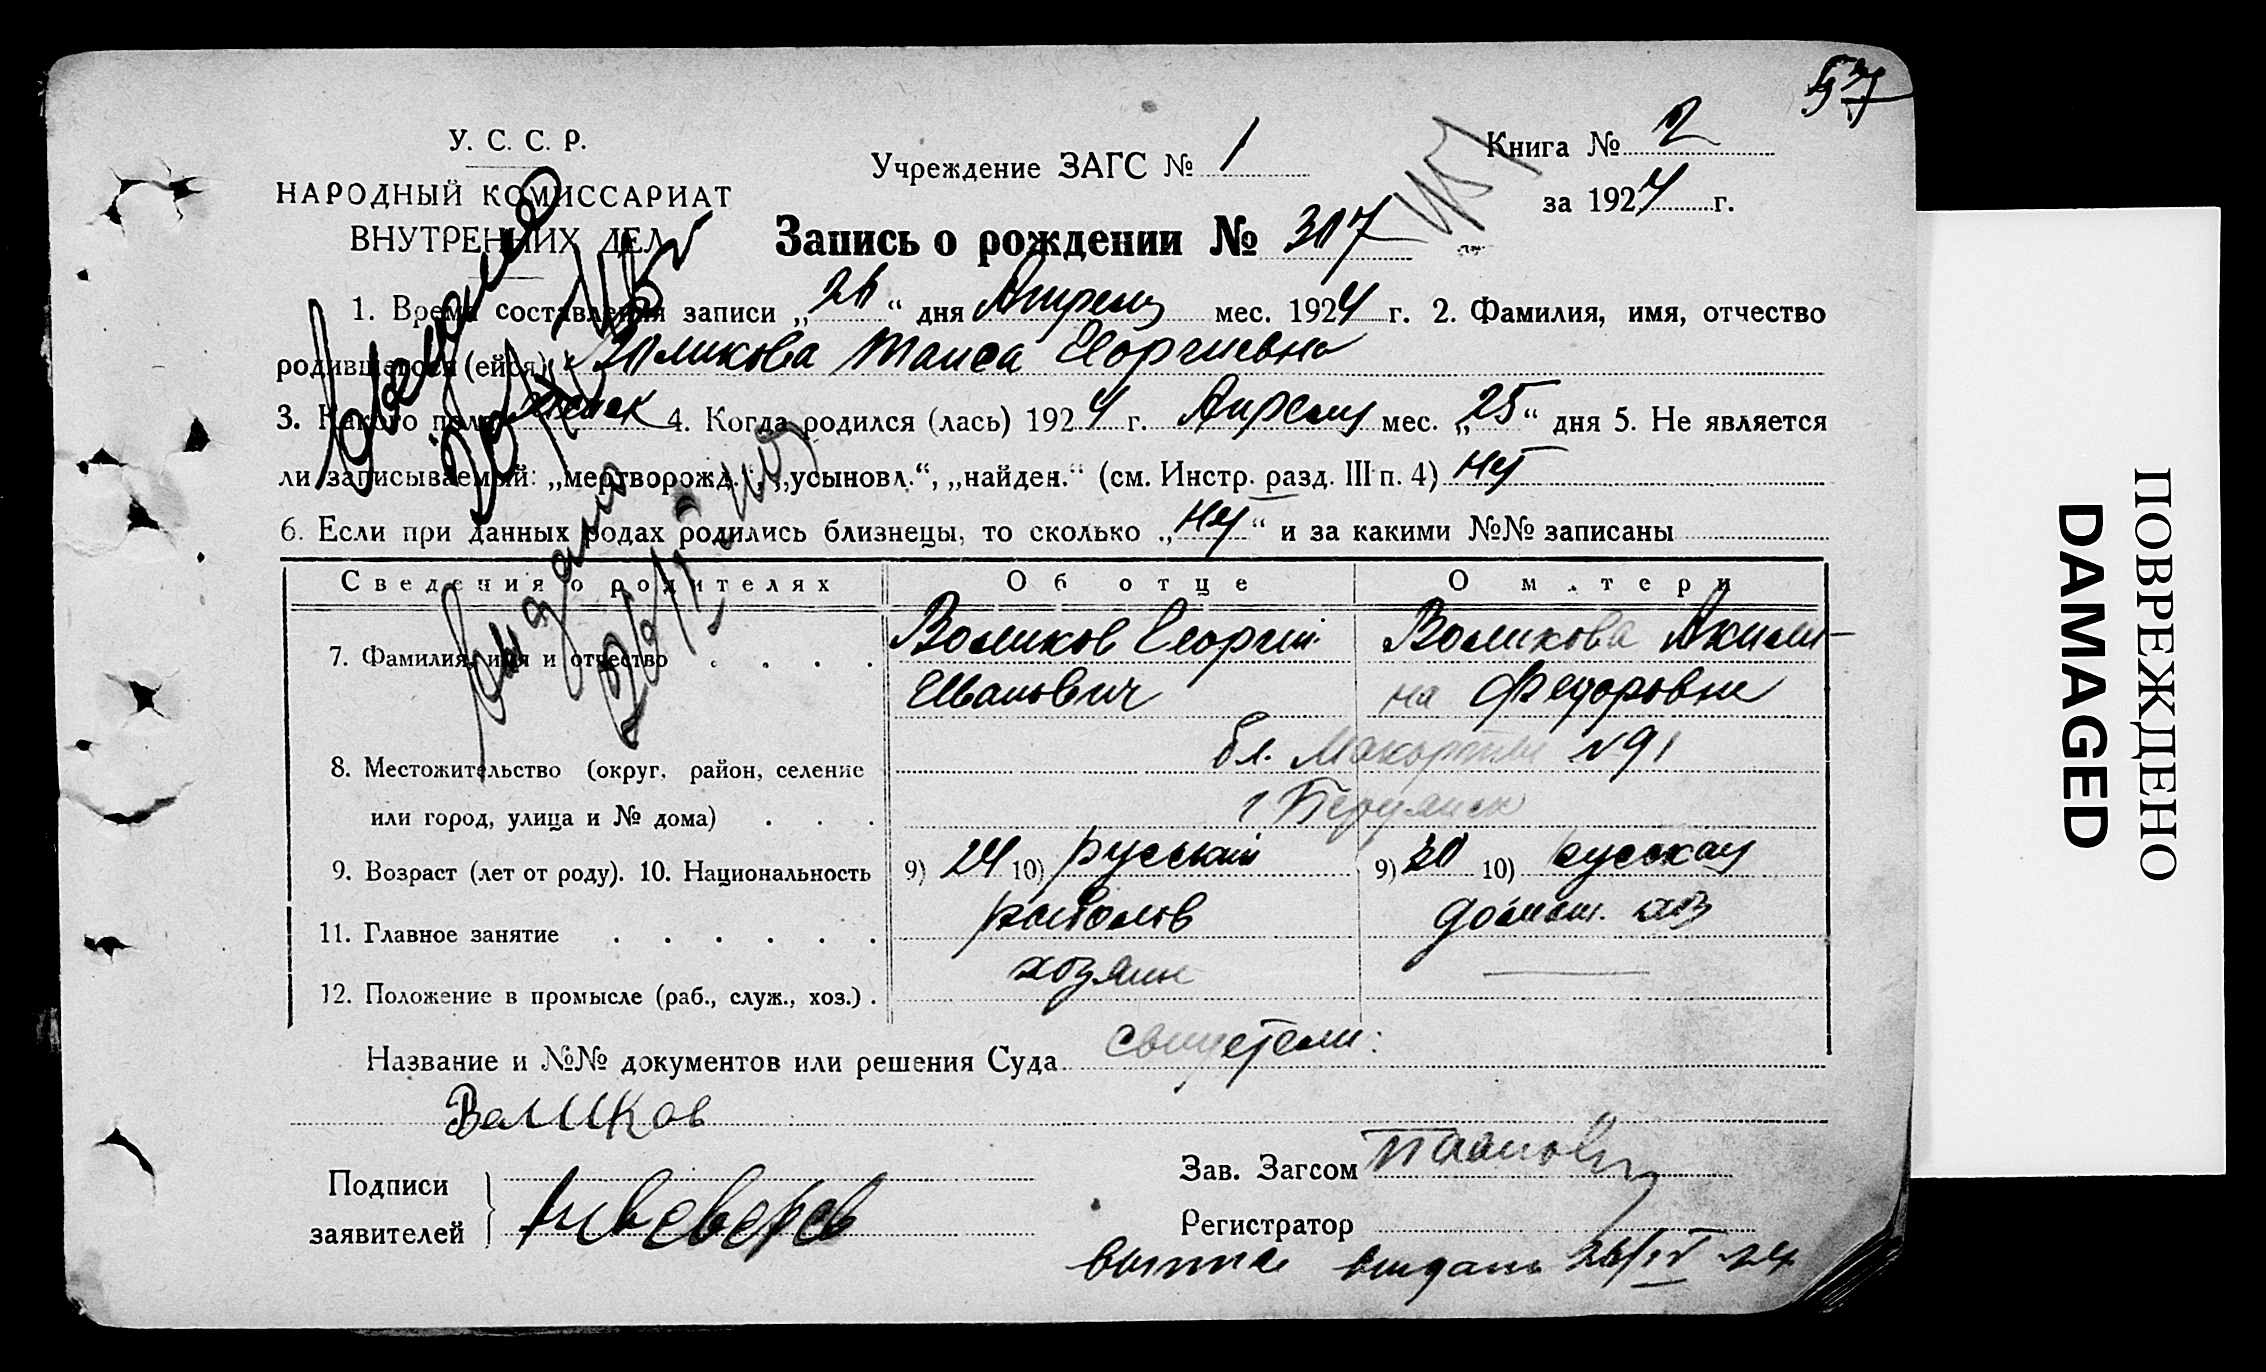 У. С. С. Р.
НАРОДНЫЙ КОМИССАРИАТ
ВНУТРЕННИХ ДЕЛ
Учреждение ЗАГС № 1
Книга № 2
за 1924 г.
Запись о рождении № 307
1. Время составления записи „26“ дня Апреля мес. 1924 г. 2. Фамилия, имя, отчество
родившегося (ейся) Воликова Таиса Георгиевна
3. Какого пола женск 4. Когда родился (лась) 1924 г. Апреля мес. „25“ дня 5. Не является
ли записываемый: „мертворожд.“, „усыновл.“, „найден.“ (см. Инстр. разд. III п. 4) нет
6. Если при данных родах родились близнецы, то сколько „нет“ и за какими №№ записаны
Сведения о родителях Об отце О м.тери
7. Фамилия, имя и отчество . . . . Воликов Георгий Воликова Акили-
Иванович на Федоровна
8. Местожительство (округ, район, селение бл. №91
или город, улица и № дома) . . . г Бердянск
9. Возраст (лет от роду). 10. Национальность 9) 24 10) русский 9) 20 10) русская
11. Главное занятие . . . . . . рыболов домаш. хоз
12. Положение в промысле (раб., служ., хоз.) . хозяин
Название и №№ документов или решения Суда свидетели:
Воликов
Подписи
заявителей
Зав. Загсом
Регистратор
выписка выдана 26/IV 24
выдано
ПОВРЕЖДЕНО
DAMAGED